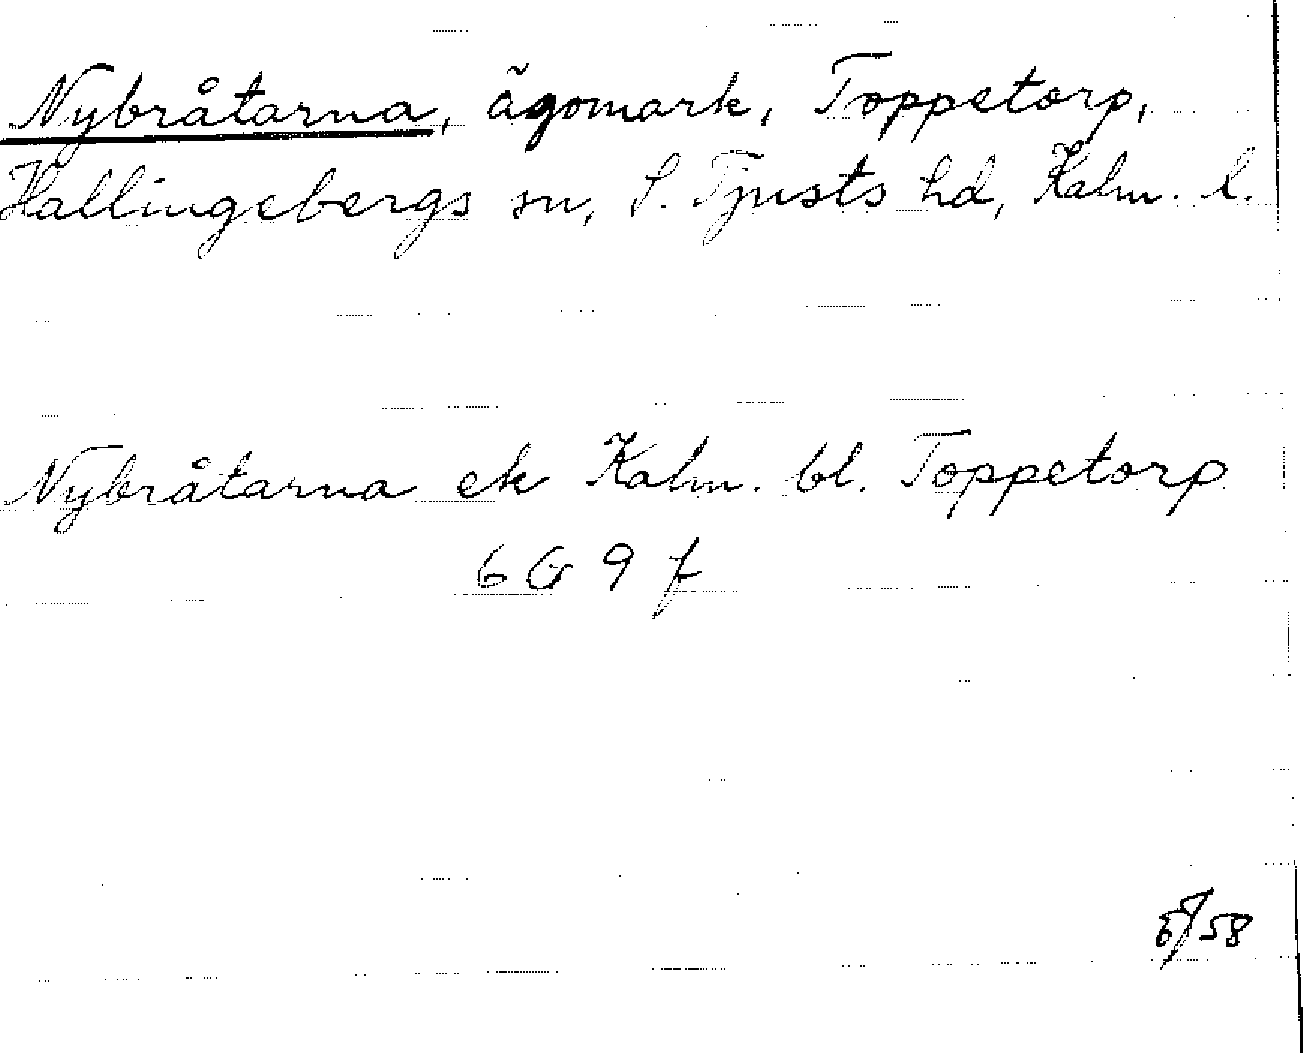 Nybråtarna, ägomark, Toppetorp,
Hallingebergs sn, S. Tjusts hd, Kalm. l.
Nybråtarna ek Kalm. bl. Toppetorp
6 G 9 f
/58